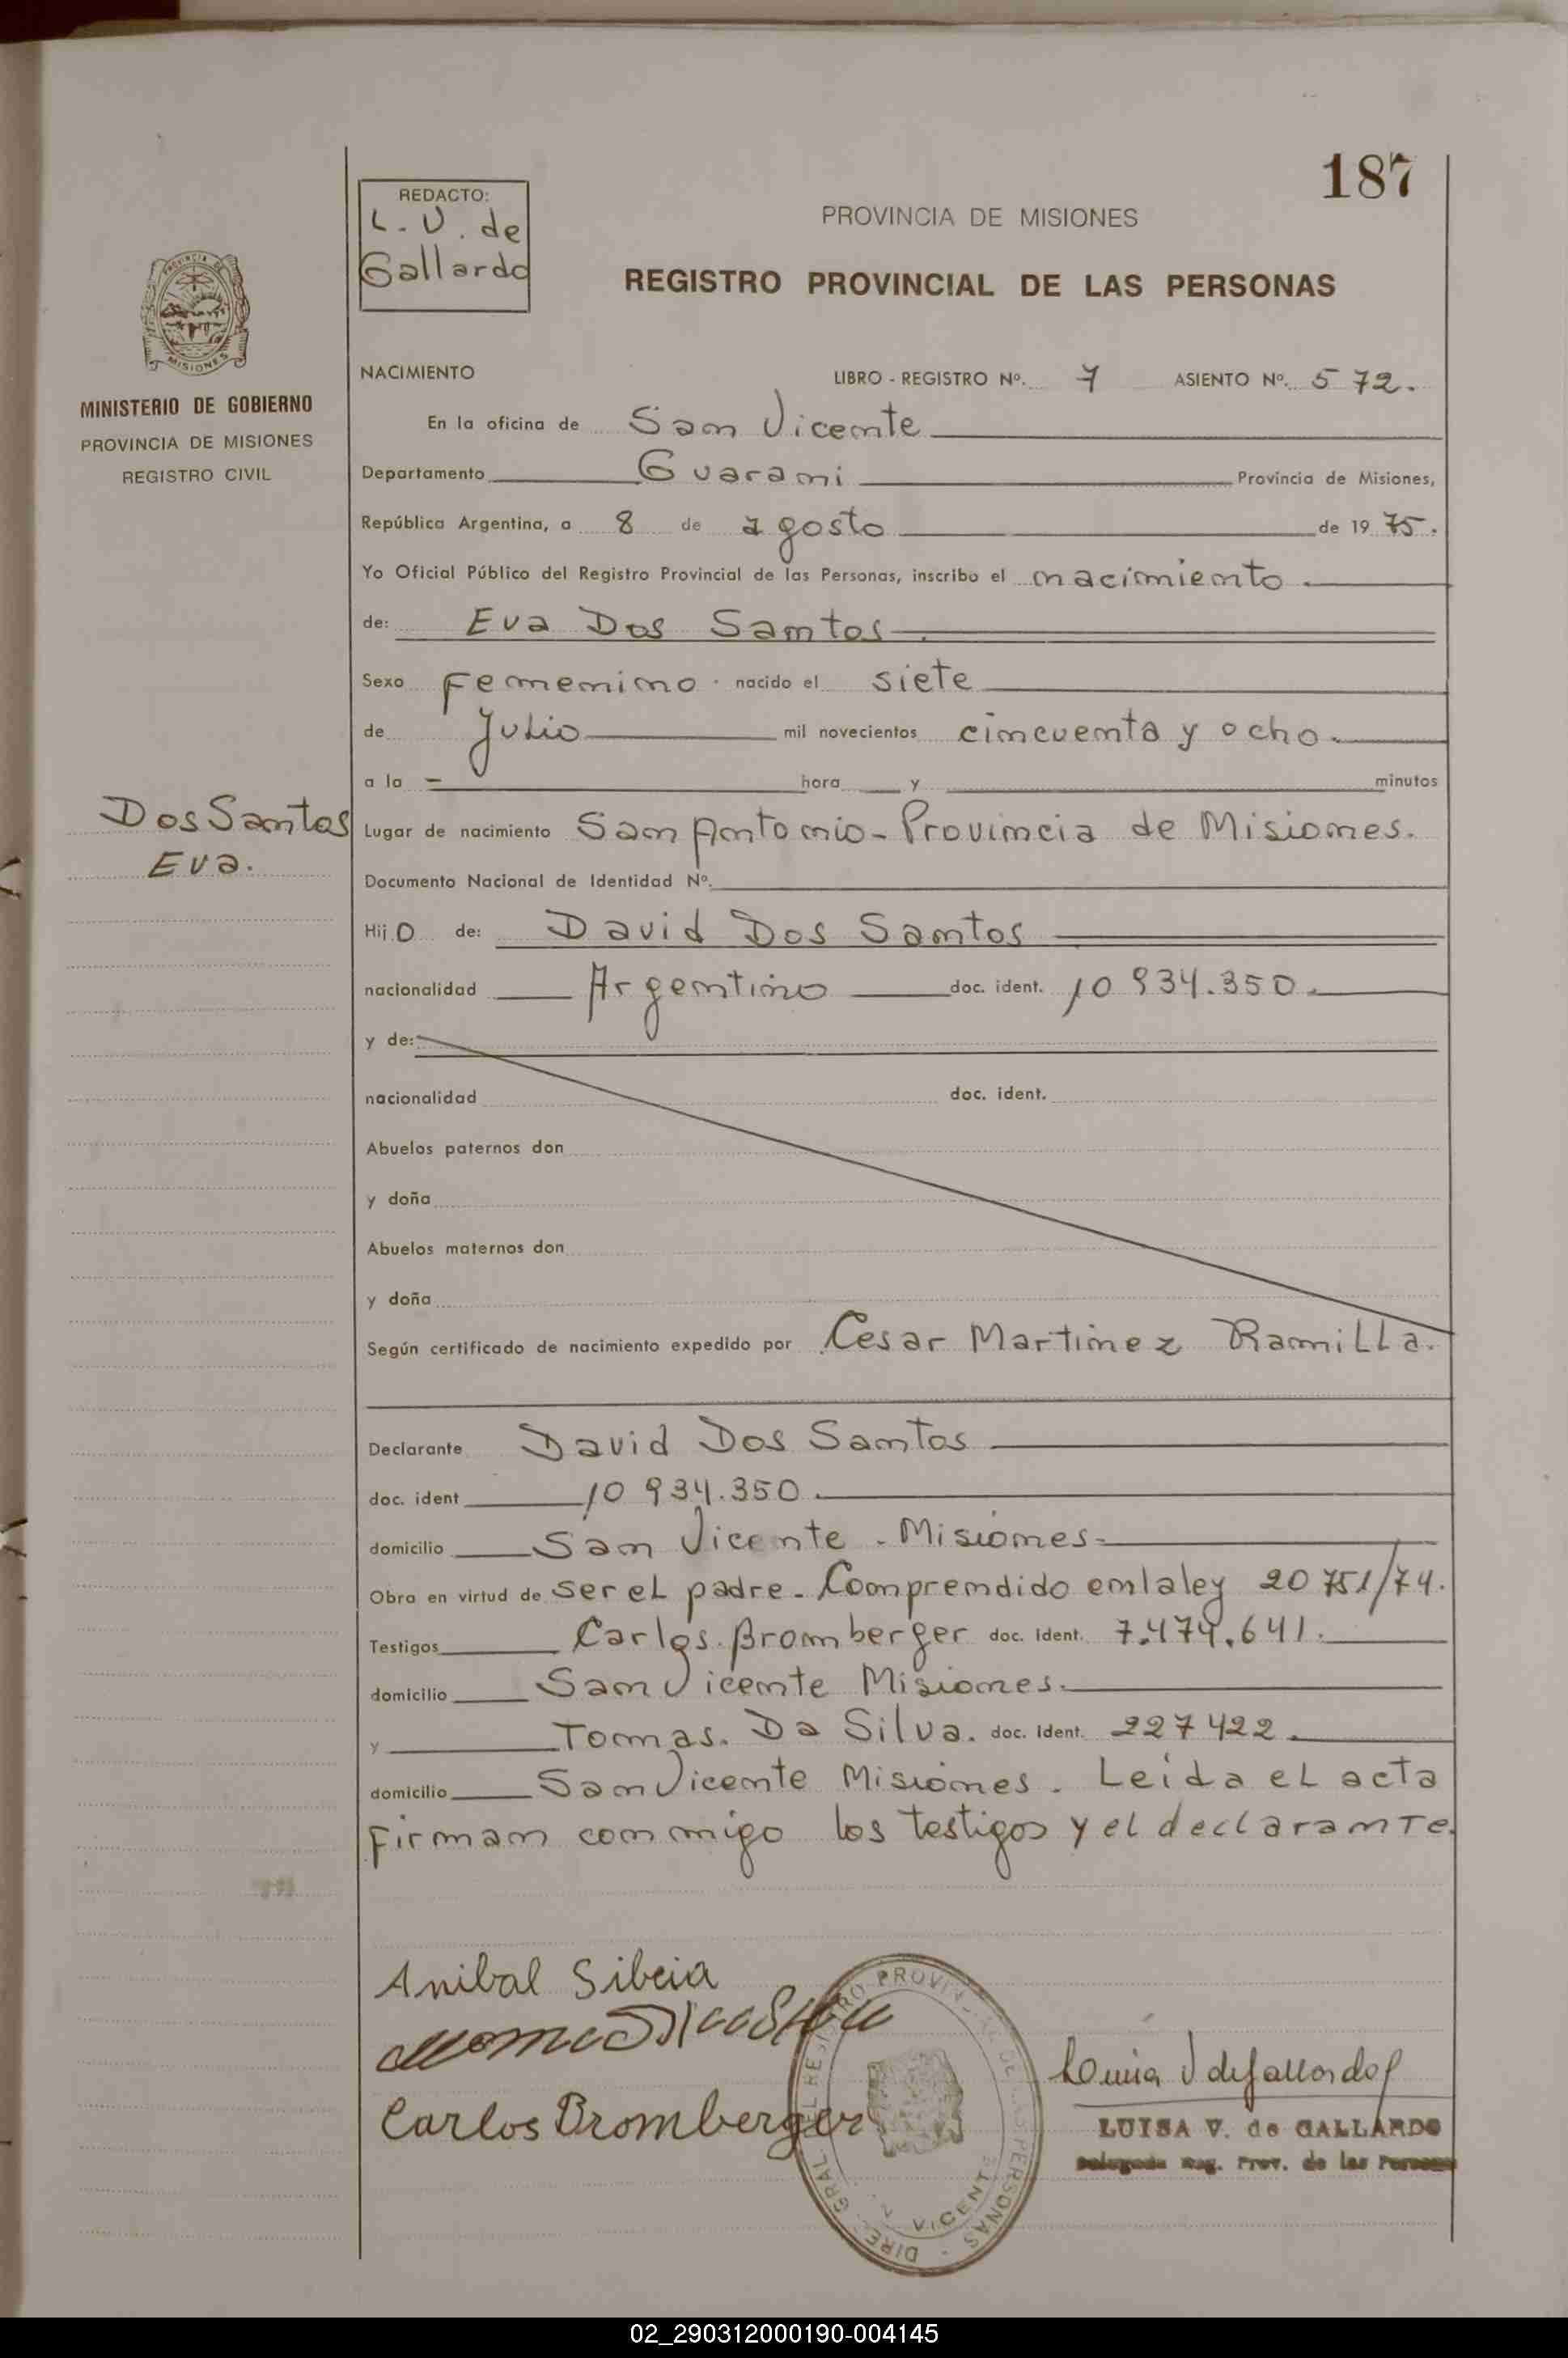 187
REDACTO:
L. V. de
Gallardo
PROVINCIA DE MISIONES
REGISTRO PROVINCIAL DE LAS PERSONAS
PROVINCIA DE
MISIONES
MINISTERIO DE GOBIERNO
PROVINCIA DE MISIONES
REGISTRO CIVIL
NACIMIENTO LIBRO - REGISTRO Nº. 7 ASIENTO Nº. 572.
En la oficina de San Vicente
Departamento Guarani Provincia de Misiones,
República Argentina, a 8 de agosto de 1975.
Yo Oficial Público del Registro Provincial de las Personas, inscribo el nacimiento.
de: Eva Dos Santos
Sexo femenino. nacido el siete
de Julio mil novecientos cincuenta y ocho.
a la - hora y minutos
Dos Santos
Eva.
Lugar de nacimiento San Antonio - Provincia de Misiones.
Documento Nacional de Identidad Nº.
Hijo de: David Dos Santos
nacionalidad Argentino doc. ident. 10 934.350.
y de:
nacionalidad doc. ident.
Abuelos paternos don
y doña
Abuelos maternos don
y doña
Según certificado de nacimiento expedido por Cesar Martinez Ramilla.
Declarante David Dos Santos
doc. ident 10 934.350.
domicilio San Vicente - Misiones-
Obra en virtud de ser el padre. Comprendido en la ley 20 751/74.
Testigos Carlos. Bromberger doc. Ident. 7.474.641.
domicilio San Vicente Misiones.
y Tomas. Da Silva. doc. Ident. 227422.
domicilio San Vicente Misiones. Leida el acta
firman conmigo los testigos y el declarante.
Anibal
Carlos Bromberger
DIREC. GRAL. DEL REGISTRO PROVINCIAL DE LAS PERSONAS
VICENTE
LUISA V. de GALLARDO
Delegada Reg. Prov. de las Personas
02_290312000190-004145